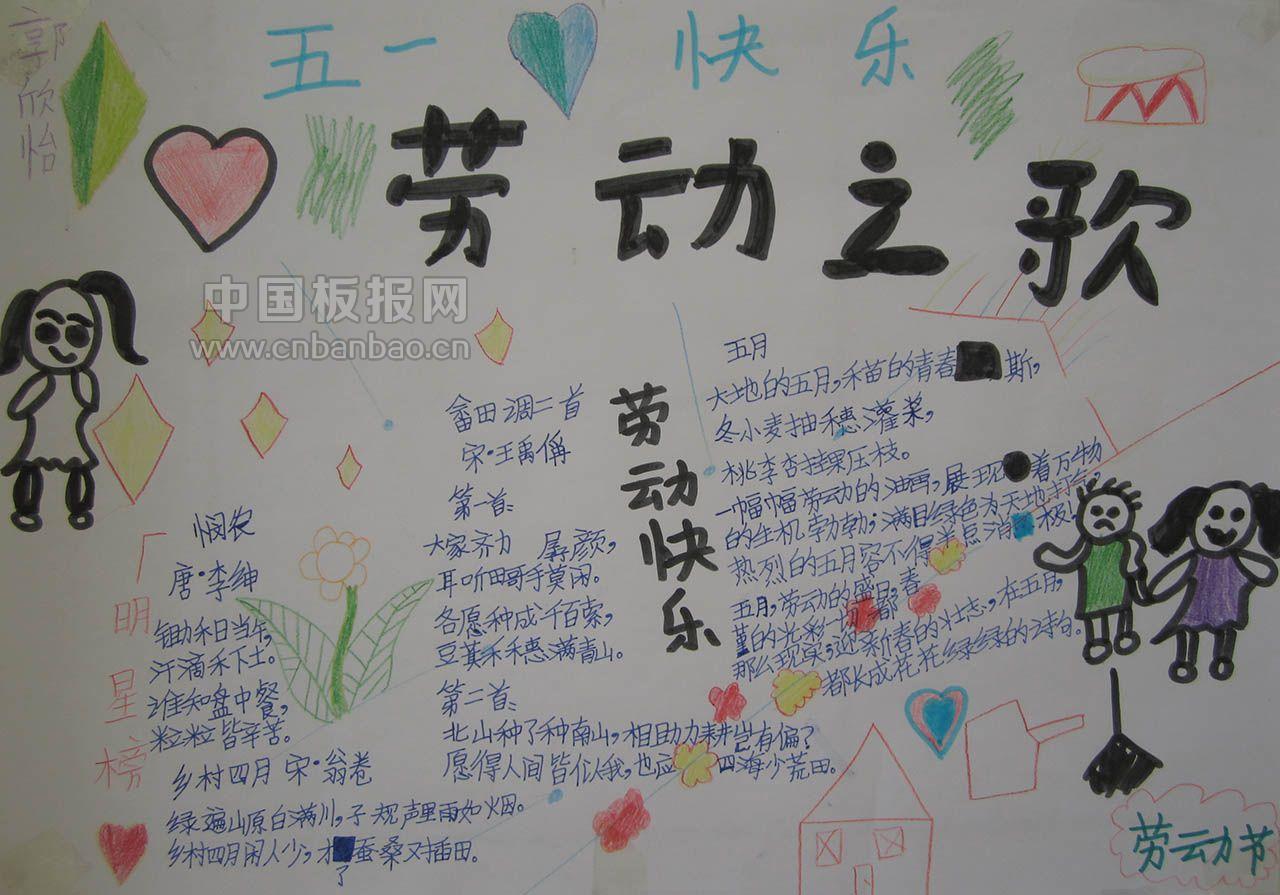 郭欣怡
五一 快乐
劳动之歌
中国板报网
www.cnbanbao.cn
广明星榜
悯农
唐·李绅
锄禾日当午,
汗滴禾下土。
谁知盘中餐,
粒粒皆辛苦。
乡村四月 宋·翁卷
绿遍山原白满川,子规声里雨如烟。
乡村四月闲人少,才了蚕桑又插田。
畲田调二首
宋·王禹偁
第一首:
大家齐力 孱颜,
耳听田歌手莫闲。
各愿种成千百索,
豆萁禾穗满青山。
第二首:
北山种了种南山,相助力耕岂有偏?
愿得人间皆似我,也应四海少荒田。
劳动快乐
五月
大地的五月,禾苗的青春 斯,
冬小麦抽穗灌浆,
桃李杏挂果压枝。
一幅幅劳动的油画,展现 着万物
的生机勃勃;满目绿色为天地打气,
热烈的五月容不得半点消 极!
五月,劳动的盛日,春
堇的光彩 都
那么现实;迎新春的壮志,在五月,
都长成花花绿绿的诗句。
劳动节